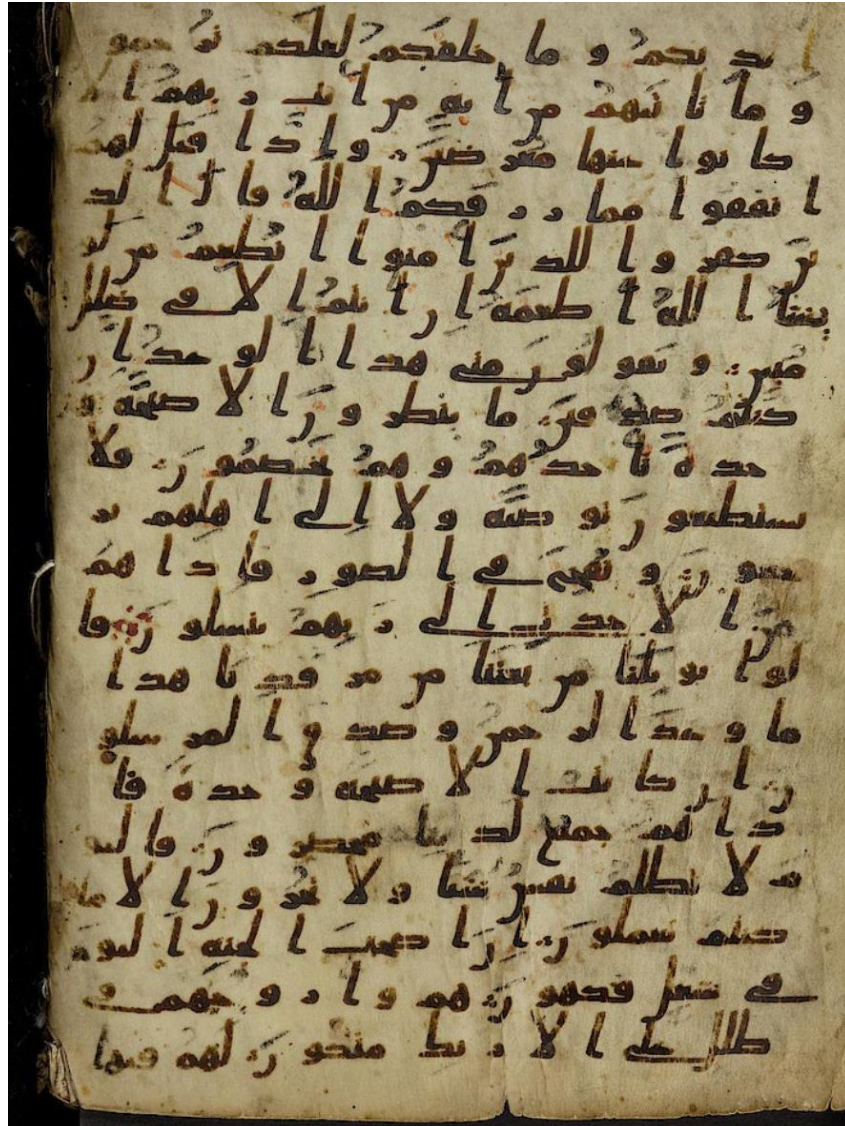 ايديكم وما خلفكم لعلكم ترحمو
و ما تاتيهم من اية من ايت ربهم ا
كانوا عنها معرضين واذا قيل لهم
انفقوا مما رزقكم الله قال الذ
ين كفروا للذين امنوا انطعم من لو
يشا الله اطعمه ان انتم الا في ضلل
مبين ويقولون متى هذا الوعد ان
كنتم صدقين ما ينظرون الا صيحة و
حدة تاخذهم وهم يخصمون فلا
يستطيعون توصية ولا الى اهلهم ير
جعون ونفخ في الصور فاذا هم
من الاجدث الى ربهم ينسلون قا
لوا يويلنا من بعثنا من مرقدنا هذا
ما وعد الرحمن وصدق المرسلو
ن ان كانت الا صيحة وحدة فا
ذا هم جميع لدينا محضرون فاليو
م لا تظلم نفس شيا ولا تجزون الا ما
كنتم تعملون ان اصحب الجنة اليوم
في شغل فكهون هم وازوجهم في
ظلل على الاريك متكون لهم فيها